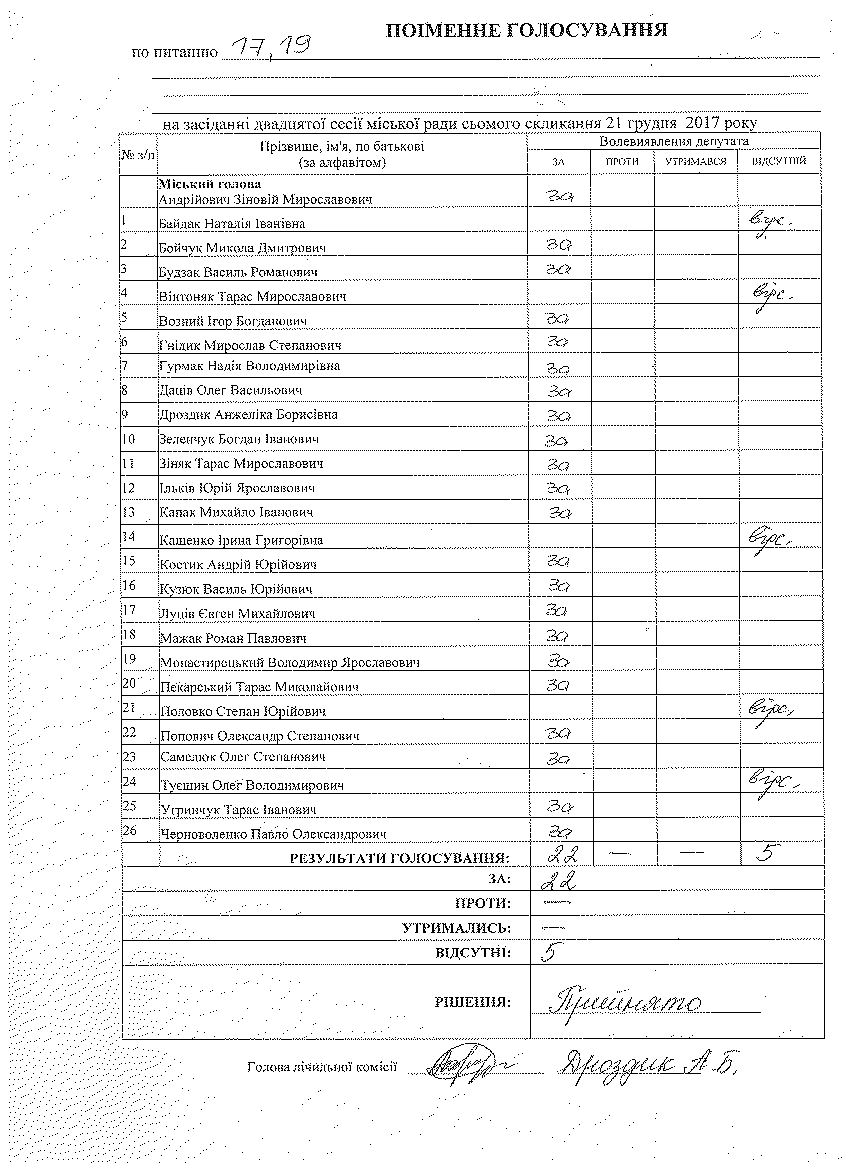 ПОІМЕННЕ ГОЛОСУВАННЯ
по питанню 17, 19
на засіданні двадцятої сесії міської ради сьомого скликання 21 грудня 2017 року
№ з/п Прізвище, ім'я, по батькові (за алфавітом) Волевиявлення депутата
ЗА ПРОТИ УТРИМАВСЯ ВІДСУТНІЙ
Міський голова
Андрійович Зіновій Мирославович за
1 Байдак Наталія Іванівна відс.
2 Бойчук Микола Дмитрович за
3 Будзак Василь Романович за
4 Вінтоняк Тарас Мирославович відс.
5 Возний Ігор Богданович за
6 Гнідик Мирослав Степанович за
7 Гурмак Надія Володимирівна за
8 Даців Олег Васильович за
9 Дроздик Анжеліка Борисівна за
10 Зеленчук Богдан Іванович за
11 Зіняк Тарас Мирославович за
12 Ільків Юрій Ярославович за
13 Капак Михайло Іванович за
14 Кащенко Ірина Григорівна відс.
15 Костик Андрій Юрійович за
16 Кузюк Василь Юрійович за
17 Луців Євген Михайлович за
18 Мажак Роман Павлович за
19 Монастирецький Володимир Ярославович за
20 Пекарський Тарас Миколайович за
21 Половко Степан Юрійович відс.
22 Попович Олександр Степанович за
23 Самелюк Олег Степанович за
24 Туєшин Олег Володимирович відс.
25 Угринчук Тарас Іванович за
26 Черноволенко Павло Олександрович за
РЕЗУЛЬТАТИ ГОЛОСУВАННЯ: 22 — — 5
ЗА: 22
ПРОТИ: —
УТРИМАЛИСЬ: —
ВІДСУТНІ: 5
РІШЕННЯ: Прийнято
Голова лічильної комісії Дроздик А.Б.